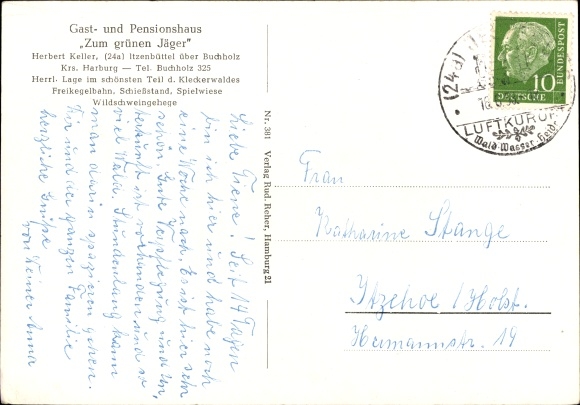 Gast- und Pensionshaus
„Zum grünen Jäger"
Herbert Keller, (24a) Itzenbüttel über Buchholz
Krs. Harburg — Tel. Buchholz 325
Herrl. Lage im schönsten Teil d. Kleckerwaldes
Freikegelbahn, Schießstand, Spielwiese
Wildschweingehege
Liebe Tiene! Seit 14 Tagen
bin ich hier und habe noch
eine Woche nach. Es ist hier sehr
schön. Gute Verpflegung und Un-
terkunft ist vorhanden und so
viel Wald. Stundenlang kann
man darin spazieren gehen.
Dir und der ganzen Familie
herzliche Grüße
von Deiner Anna
Nr. 381 Verlag Rud. Reher, Hamburg 21
(24a)
LUFTKURORT
Wald Wasser Heide
10
DEUTSCHE
BUNDESPOST
Frau
Katharine Stange
Itzehoe / Holst.
Heimannstr. 19